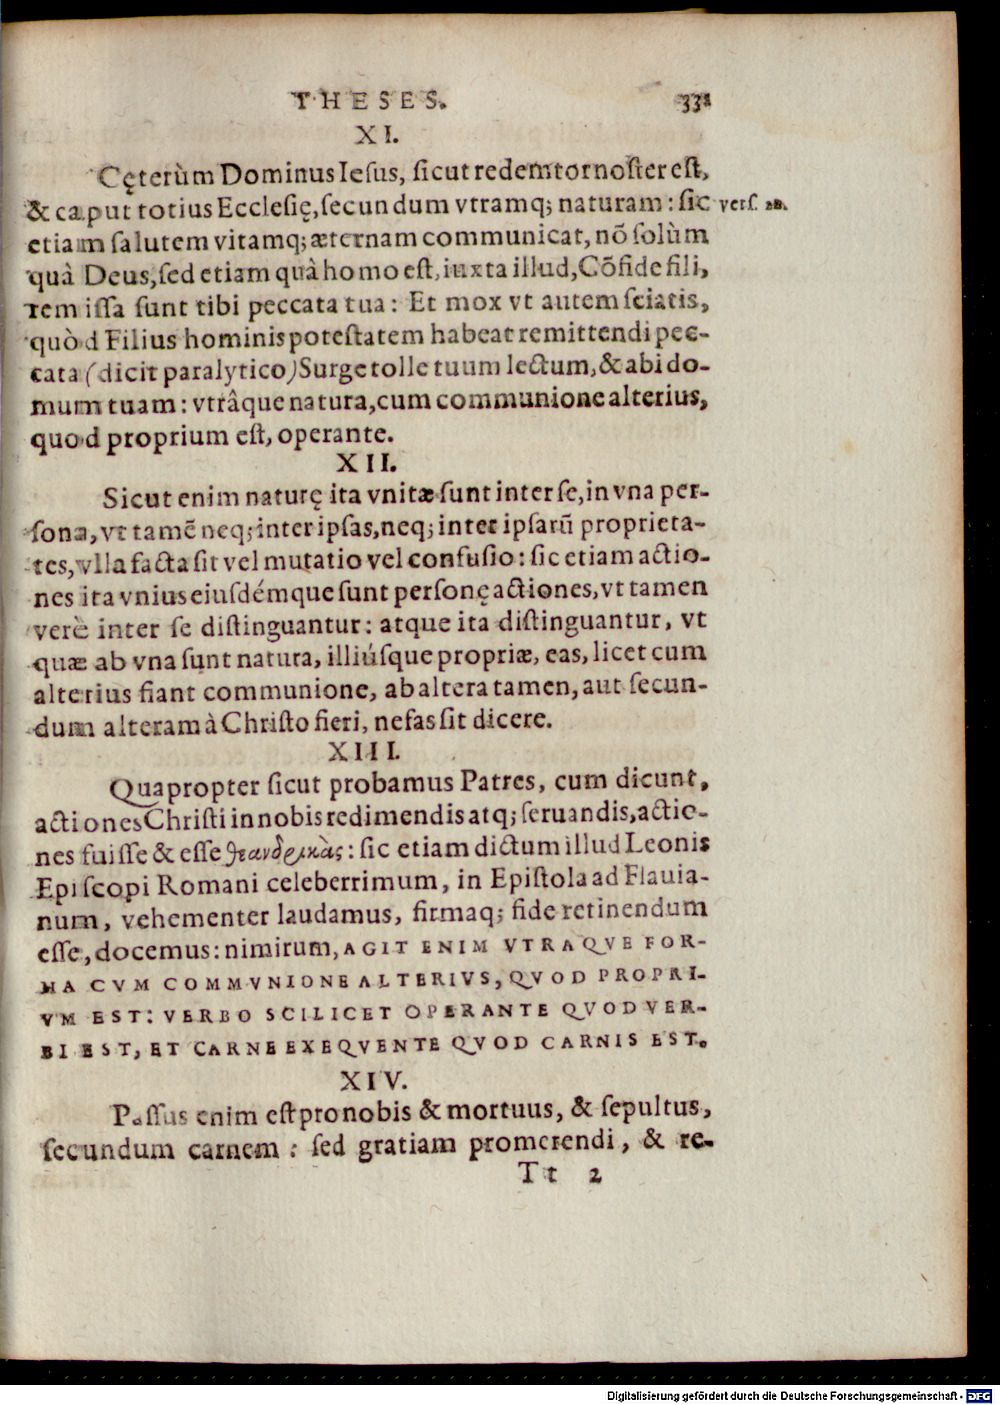 THESES. 331
XI.
Cęterùm Dominus Iesus, sicut redemtor noster est,
& caput totius Ecclesię, secundum vtramq; naturam: sic vers. 28.
etiam salutem vitamq; æternam communicat, nõ solùm
quà Deus, sed etiam quà homo est, iuxta illud, Cõfide fili,
remissa sunt tibi peccata tua: Et mox vt autem sciatis,
quòd Filius hominis potestatem habeat remittendi pec-
cata (dicit paralytico) Surge tolle tuum lectum, & abi do-
mum tuam: vtrâque natura, cum communione alterius,
quod proprium est, operante.
XII.
Sicut enim naturę ita vnitæ sunt inter se, in vna per-
sona, vt tamẽ neq; inter ipsas, neq; inter ipsarũ proprieta-
tes, vlla facta sit vel mutatio vel confusio: sic etiam actio-
nes ita vnius eiusdémque sunt personę actiones, vt tamen
verè inter se distinguantur: atque ita distinguantur, vt
quæ ab vna sunt natura, illiúsque propriæ, eas, licet cum
alterius fiant communione, ab altera tamen, aut secun-
dum alteram à Christo fieri, nefas sit dicere.
XIII.
Quapropter sicut probamus Patres, cum dicunt,
actiones Christi in nobis redimendis atq; seruandis, actio-
nes fuisse & esse θεανδρικὰς: sic etiam dictum illud Leonis
Episcopi Romani celeberrimum, in Epistola ad Flauia-
num, vehementer laudamus, firmaq; fide retinendum
esse, docemus: nimirum, AGIT ENIM VTRAQVE FOR-
MA CVM COMMVNIONE ALTERIVS, QVOD PROPRI-
VM EST: VERBO SCILICET OPERANTE QVOD VER-
BI EST, ET CARNE EXEQVENTE QVOD CARNIS EST.
XIV.
Passus enim est pro nobis & mortuus, & sepultus,
secundum carnem: sed gratiam promerendi, & re-
Tt 2
Digitalisierung gefördert durch die Deutsche Forschungsgemeinschaft - DFG